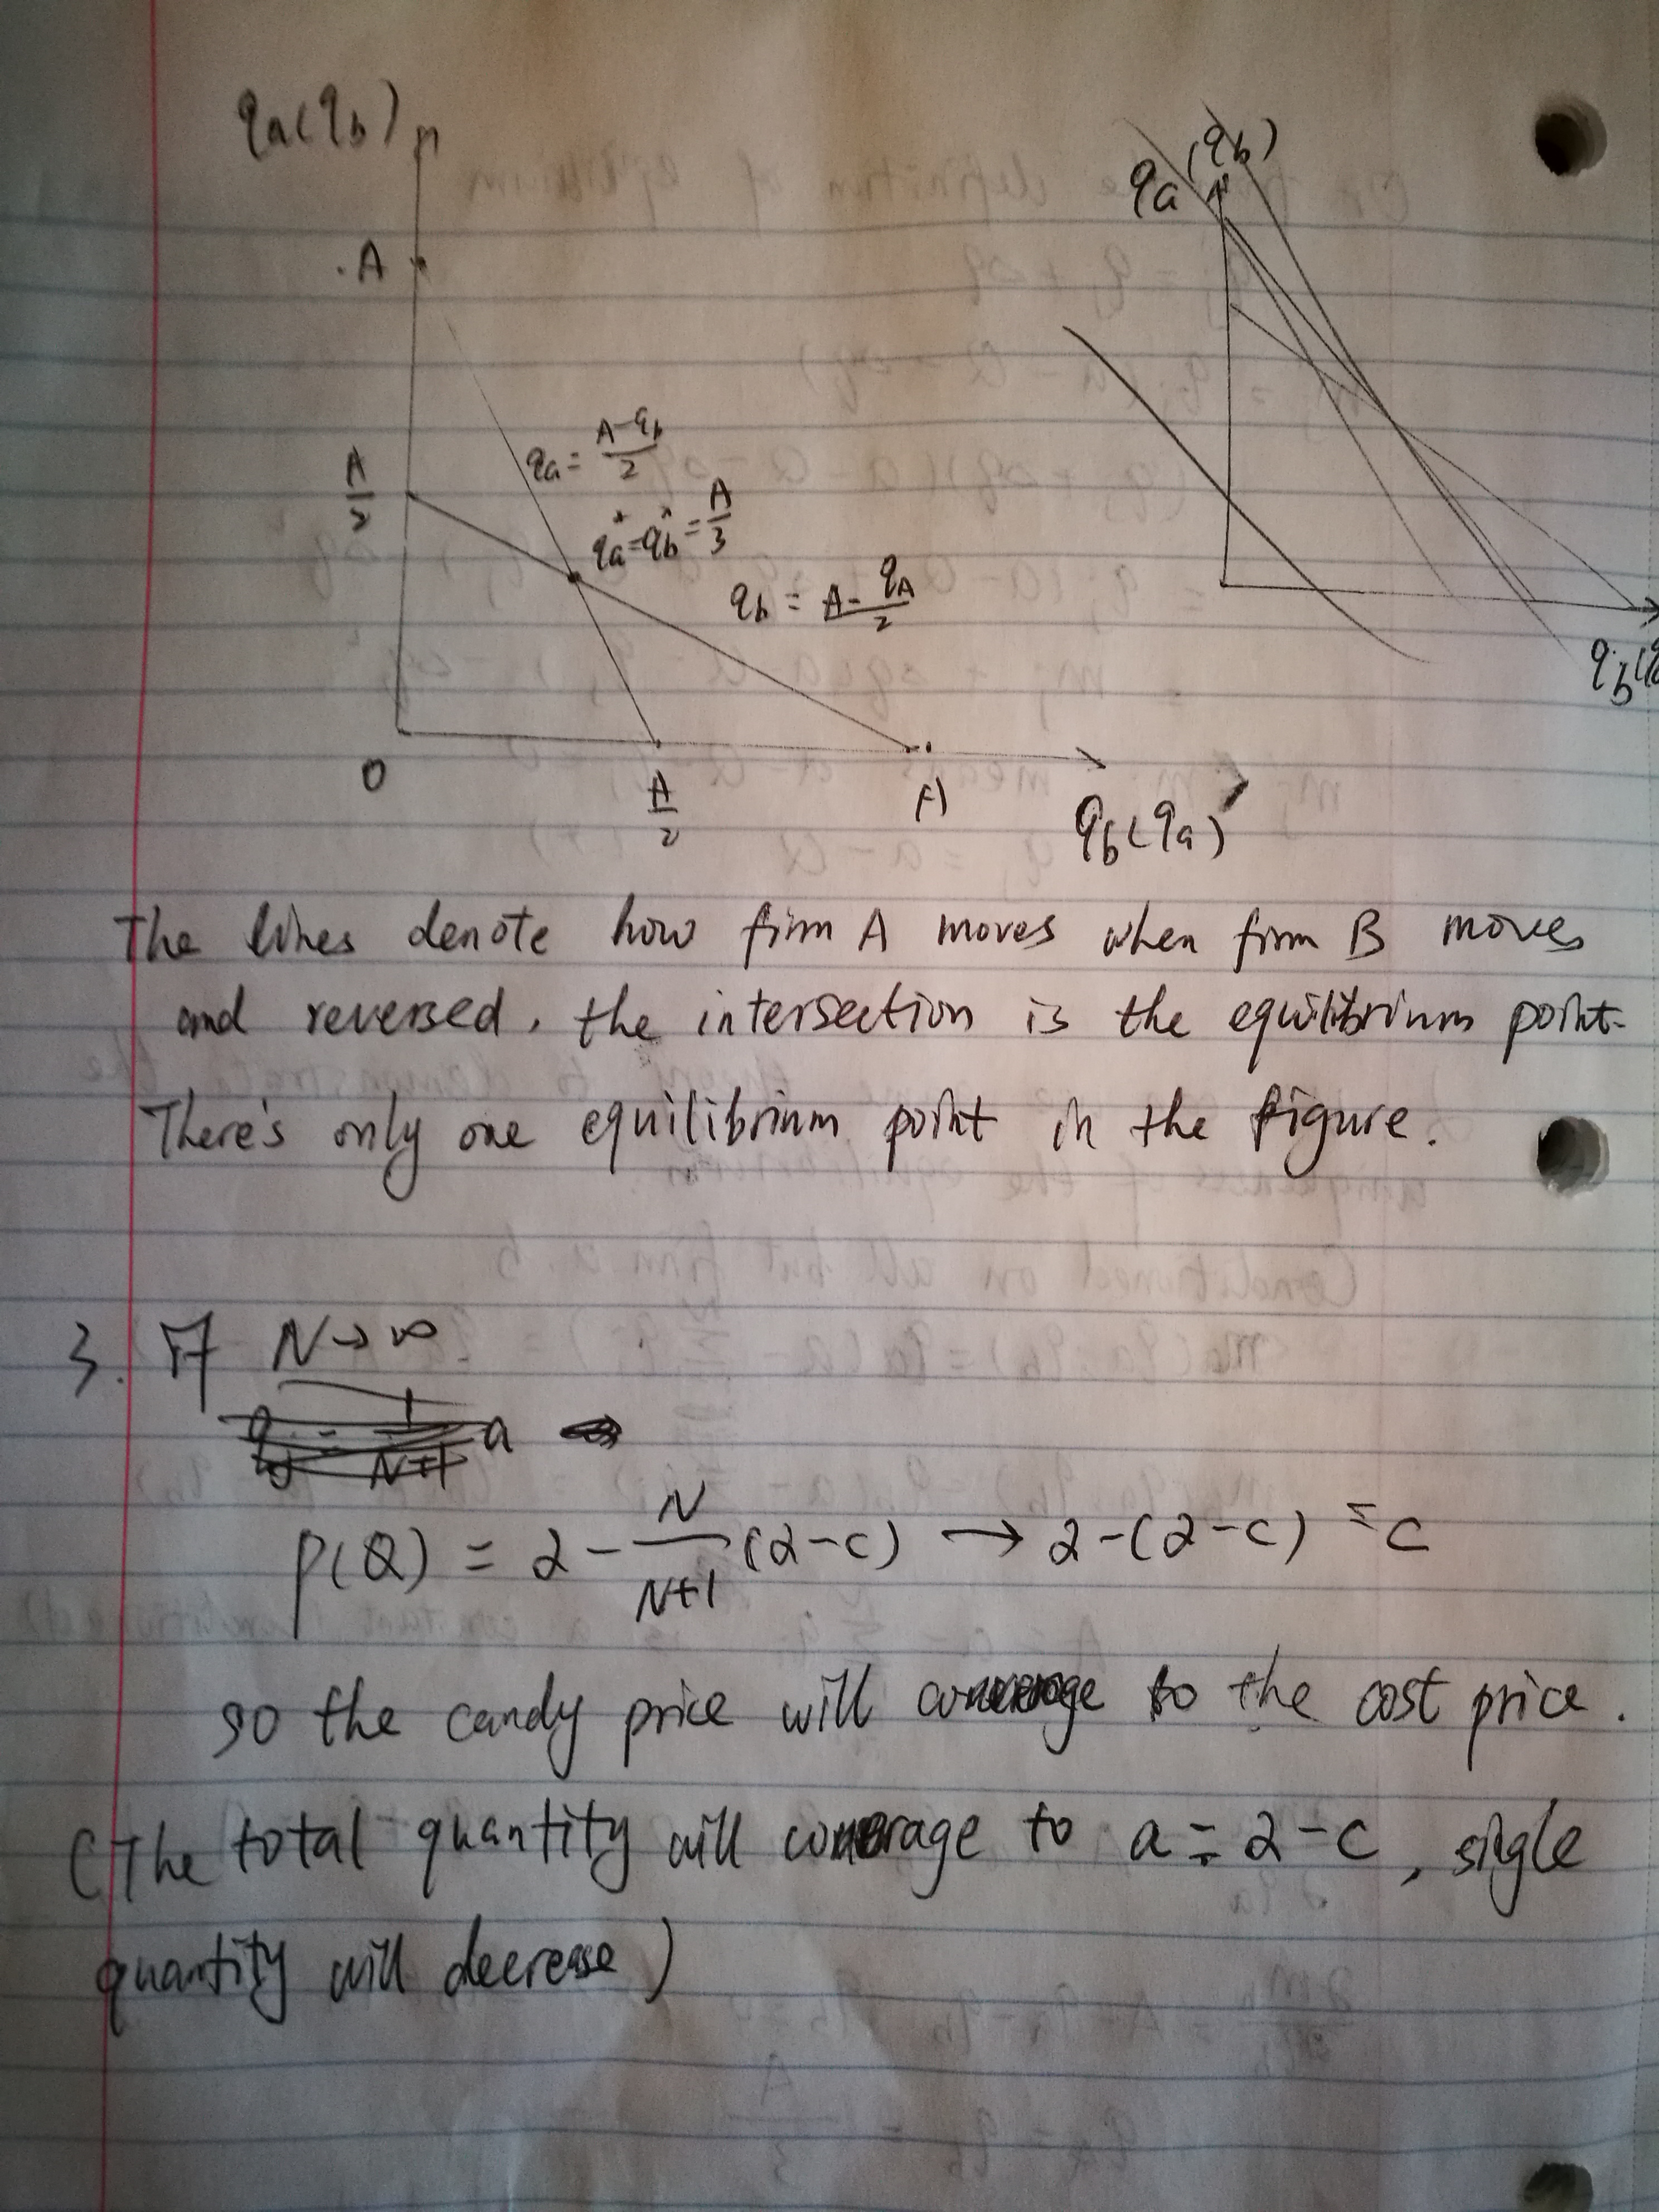 qa(qb)
qa(qb)
A
A/2
qa = (A-qb)/2
qa* = qb* = A/3
qb = (A-qA)/2
0
A/2
A
qb(qa)
The lines denote how firm A moves when firm B moves
and reversed. the intersection is the equilibrium point.
There's only one equilibrium point in the figure.
3. If N→∞
P(Q) = 2 - N/(N+1) (2-c) → 2-(2-c) = c
so the candy price will converge to the cost price.
(The total quantity will converage to a = 2-c, sigle
quantity will decrease)